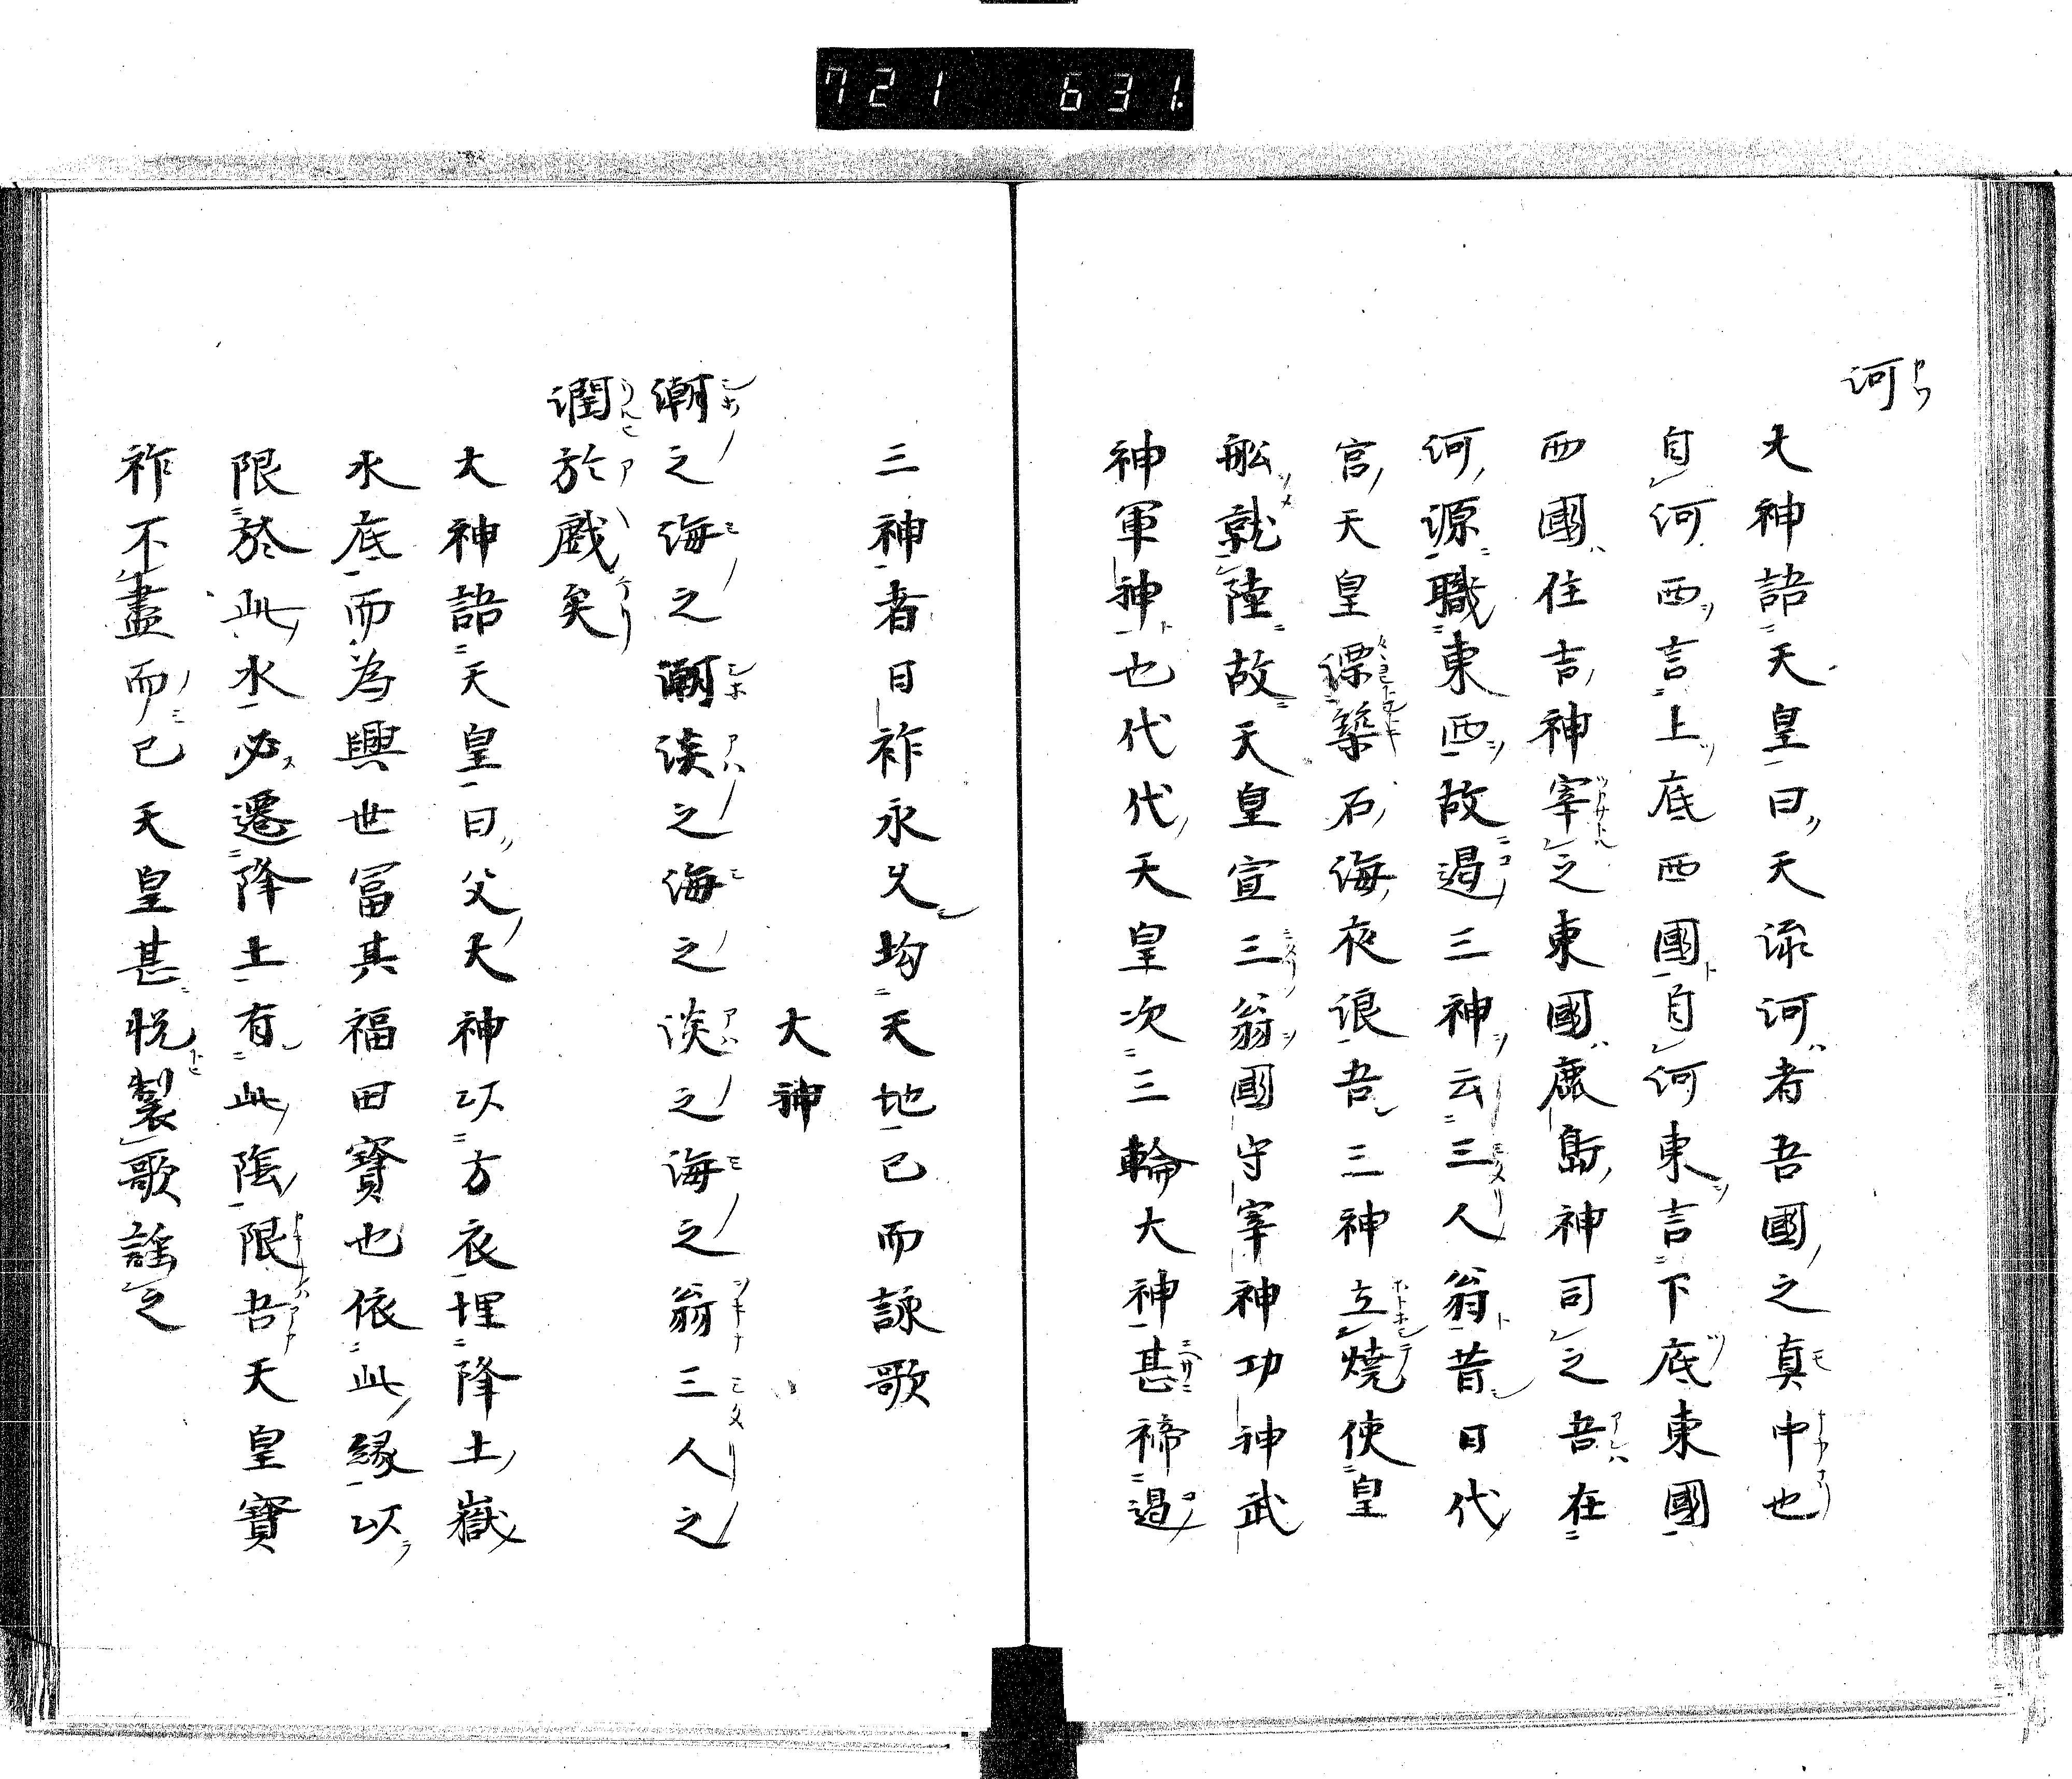 721 631.
河
大神語天皇曰天流河者吾國之真中也
自河西言上底西國自河東言下底東國
西國住吉神宰之東國鹿島神司之吾在
河源職東西故過三神云三人翁昔日代
宮天皇漂築石海夜浪吾三神立燒使皇
舩就陸故天皇宣三翁國守宰神功神武
神軍神也代代天皇次三輪大神甚禘過
三神者日祚永久均天地已而詠歌
大神
潮之海之潮淡之海之淡之海之翁三人之
潤於戲矣
大神語天皇曰父大神以方衣埋降土嶽
水底而為興世冨其福田寶也依此縁以
限於此水必遷降土有此陰限吾天皇寶
祚不盡而已天皇甚悅製歌謠之